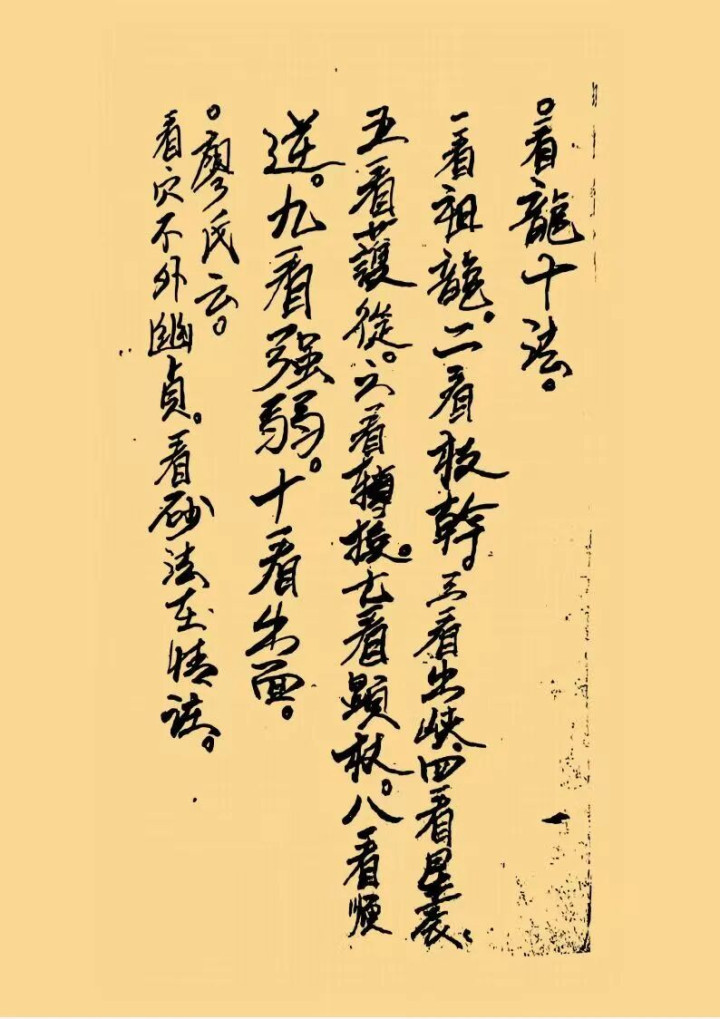 。看龍十法。
一看祖龍。二看枝幹。三看出峽。四看星辰、
五看護從。六看轉接。七看顕杖。八看順
逆。九看强弱。十看出面。
。廖氏云。
看穴不外幽貞。看砂法在情
一